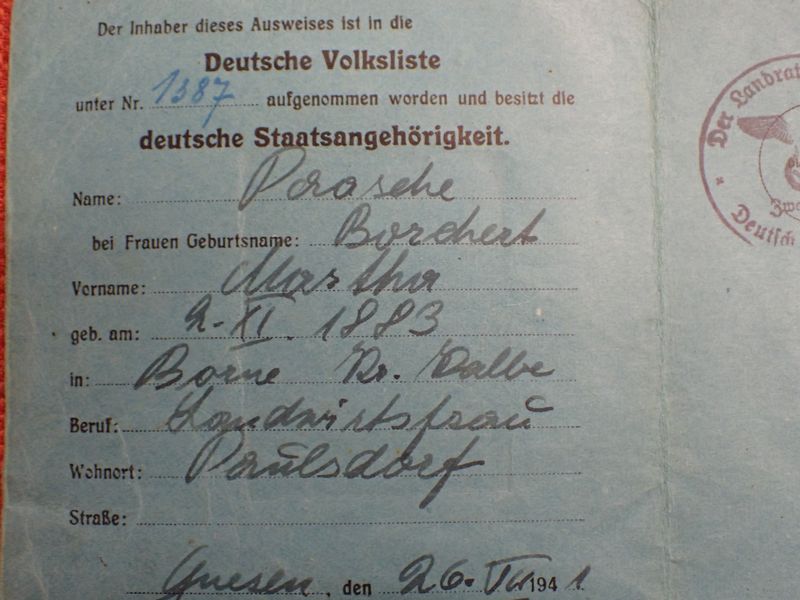 Der Inhaber dieses Ausweises ist in die
Deutsche Volksliste
unter Nr. 1387 aufgenommen worden und besitzt die
deutsche Staatsangehörigkeit.
Name: Paasche
bei Frauen Geburtsname: Borchert
Vorname: Martha
geb. am: 2. XI. 1883
in: Borne Kr. Calbe
Beruf: Landwirtsfrau
Wohnort: Paulsdorf
Straße:
Gnesen, den 26. 1941
Der Landrat
Deutsch